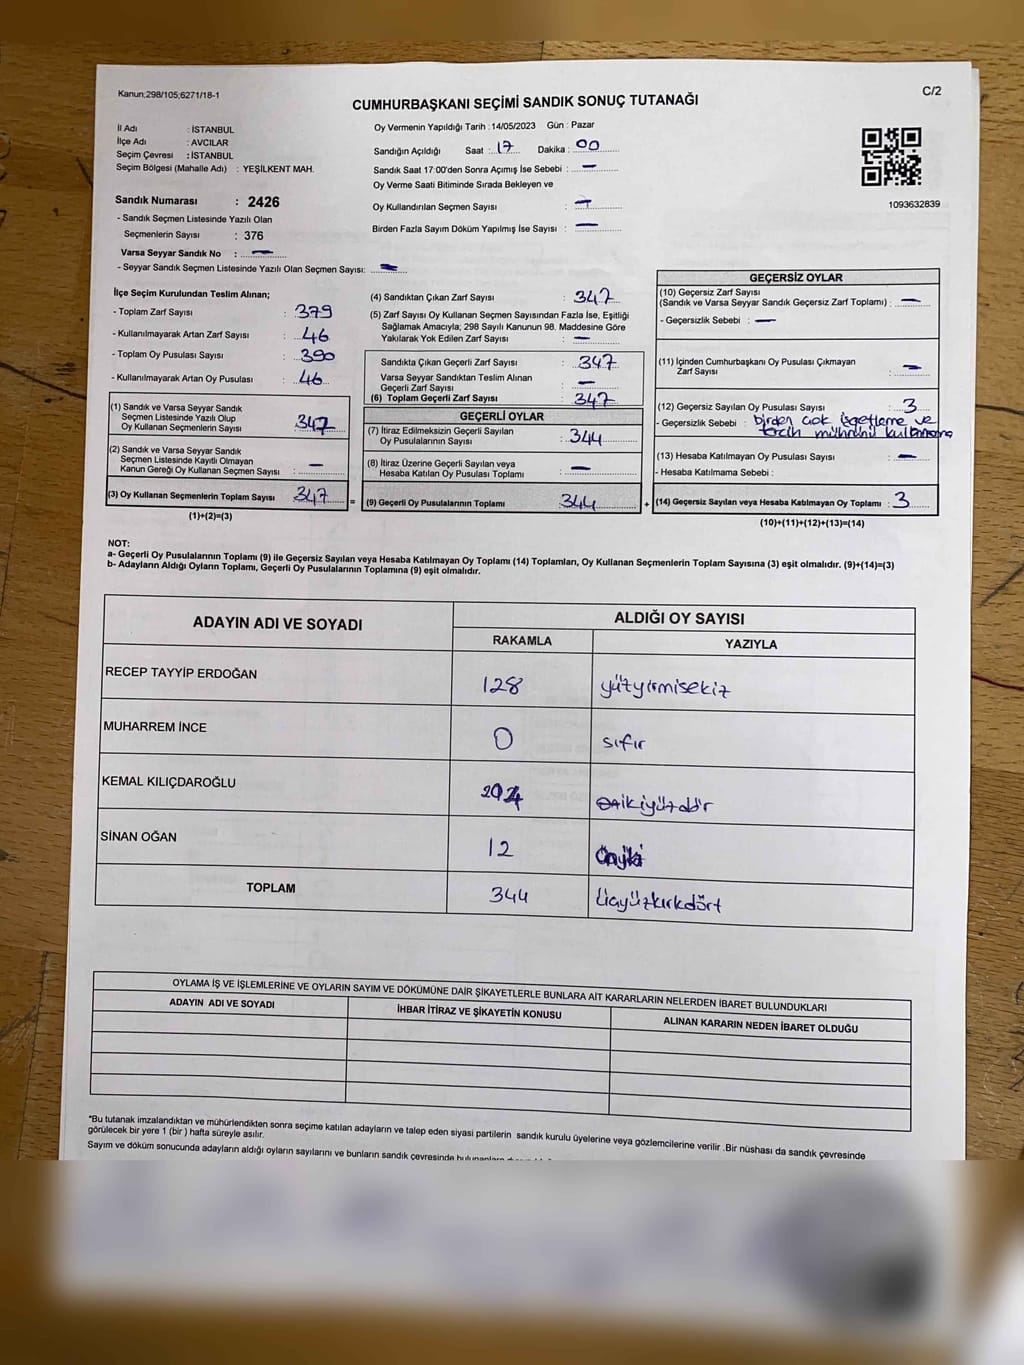 Kanun:298/105;6271/18-1
C/2
CUMHURBAŞKANI SEÇİMİ SANDIK SONUÇ TUTANAĞI
İl Adı : İSTANBUL
İlçe Adı : AVCILAR
Seçim Çevresi : İSTANBUL
Seçim Bölgesi (Mahalle Adı) : YEŞİLKENT MAH.
Oy Vermenin Yapıldığı Tarih :14/05/2023 Gün : Pazar
Sandığın Açıldığı Saat : 17 Dakika : 00
Sandık Saat 17:00'den Sonra Açımış İse Sebebi : —
Oy Verme Saati Bitiminde Sırada Bekleyen ve
Oy Kullandırılan Seçmen Sayısı : —
Birden Fazla Sayım Döküm Yapılmış İse Sayısı : —
1093632839
Sandık Numarası : 2426
- Sandık Seçmen Listesinde Yazılı Olan
Seçmenlerin Sayısı : 376
Varsa Seyyar Sandık No : —
- Seyyar Sandık Seçmen Listesinde Yazılı Olan Seçmen Sayısı: —
İlçe Seçim Kurulundan Teslim Alınan;
- Toplam Zarf Sayısı : 379
- Kullanılmayarak Artan Zarf Sayısı : 46
- Toplam Oy Pusulası Sayısı : 390
- Kullanılmayarak Artan Oy Pusulası : 46
(1) Sandık ve Varsa Seyyar Sandık
Seçmen Listesinde Yazılı Olup
Oy Kullanan Seçmenlerin Sayısı : 347
(2) Sandık ve Varsa Seyyar Sandık
Seçmen Listesinde Kayıtlı Olmayan
Kanun Gereği Oy Kullanan Seçmen Sayısı : —
(3) Oy Kullanan Seçmenlerin Toplam Sayısı 347 =
(1)+(2)=(3)
(4) Sandıktan Çıkan Zarf Sayısı : 347
(5) Zarf Sayısı Oy Kullanan Seçmen Sayısından Fazla İse, Eşitliği
Sağlamak Amacıyla; 298 Sayılı Kanunun 98. Maddesine Göre
Yakılarak Yok Edilen Zarf Sayısı : —
Sandıkta Çıkan Geçerli Zarf Sayısı : 347
Varsa Seyyar Sandıktan Teslim Alınan
Geçerli Zarf Sayısı : —
(6) Toplam Geçerli Zarf Sayısı : 347
GEÇERLİ OYLAR
(7) İtiraz Edilmeksizin Geçerli Sayılan
Oy Pusulalarının Sayısı : 344
(8) İtiraz Üzerine Geçerli Sayılan veya
Hesaba Katılan Oy Pusulası Toplamı : —
(9) Geçerli Oy Pusulalarının Toplamı : 344 +
GEÇERSİZ OYLAR
(10) Geçersiz Zarf Sayısı
(Sandık ve Varsa Seyyar Sandık Geçersiz Zarf Toplamı) : —
- Geçersizlik Sebebi : —
(11) İçinden Cumhurbaşkanı Oy Pusulası Çıkmayan
Zarf Sayısı : —
(12) Geçersiz Sayılan Oy Pusulası Sayısı : 3
- Geçersizlik Sebebi : birden çok işaretleme ve
tercih mührünü kullanmama
(13) Hesaba Katılmayan Oy Pusulası Sayısı : —
- Hesaba Katılmama Sebebi :
(14) Geçersiz Sayılan veya Hesaba Katılmayan Oy Toplamı : 3
(10)+(11)+(12)+(13)=(14)
NOT:
a- Geçerli Oy Pusulalarının Toplamı (9) ile Geçersiz Sayılan veya Hesaba Katılmayan Oy Toplamı (14) Toplamları, Oy Kullanan Seçmenlerin Toplam Sayısına (3) eşit olmalıdır. (9)+(14)=(3)
b- Adayların Aldığı Oyların Toplamı, Geçerli Oy Pusulalarının Toplamına (9) eşit olmalıdır.
ADAYIN ADI VE SOYADI
ALDIĞI OY SAYISI
RAKAMLA YAZIYLA
RECEP TAYYİP ERDOĞAN 128 yüzyirmisekiz
MUHARREM İNCE 0 sıfır
KEMAL KILIÇDAROĞLU 204 ikiyüzdör
SİNAN OĞAN 12 Oniki
TOPLAM 344 üçyüzkırkdört
OYLAMA İŞ VE İŞLEMLERİNE VE OYLARIN SAYIM VE DÖKÜMÜNE DAİR ŞİKAYETLERLE BUNLARA AİT KARARLARIN NELERDEN İBARET BULUNDUKLARI
ADAYIN ADI VE SOYADI İHBAR İTİRAZ VE ŞİKAYETİN KONUSU ALINAN KARARIN NEDEN İBARET OLDUĞU
*Bu tutanak imzalandıktan ve mühürlendikten sonra seçime katılan adayların ve talep eden siyasi partilerin sandık kurulu üyelerine veya gözlemcilerine verilir .Bir nüshası da sandık çevresinde
görülecek bir yere 1 (bir ) hafta süreyle asılır.
Sayım ve döküm sonucunda adayların aldığı oyların sayılarını ve bunların sandık çevresinde